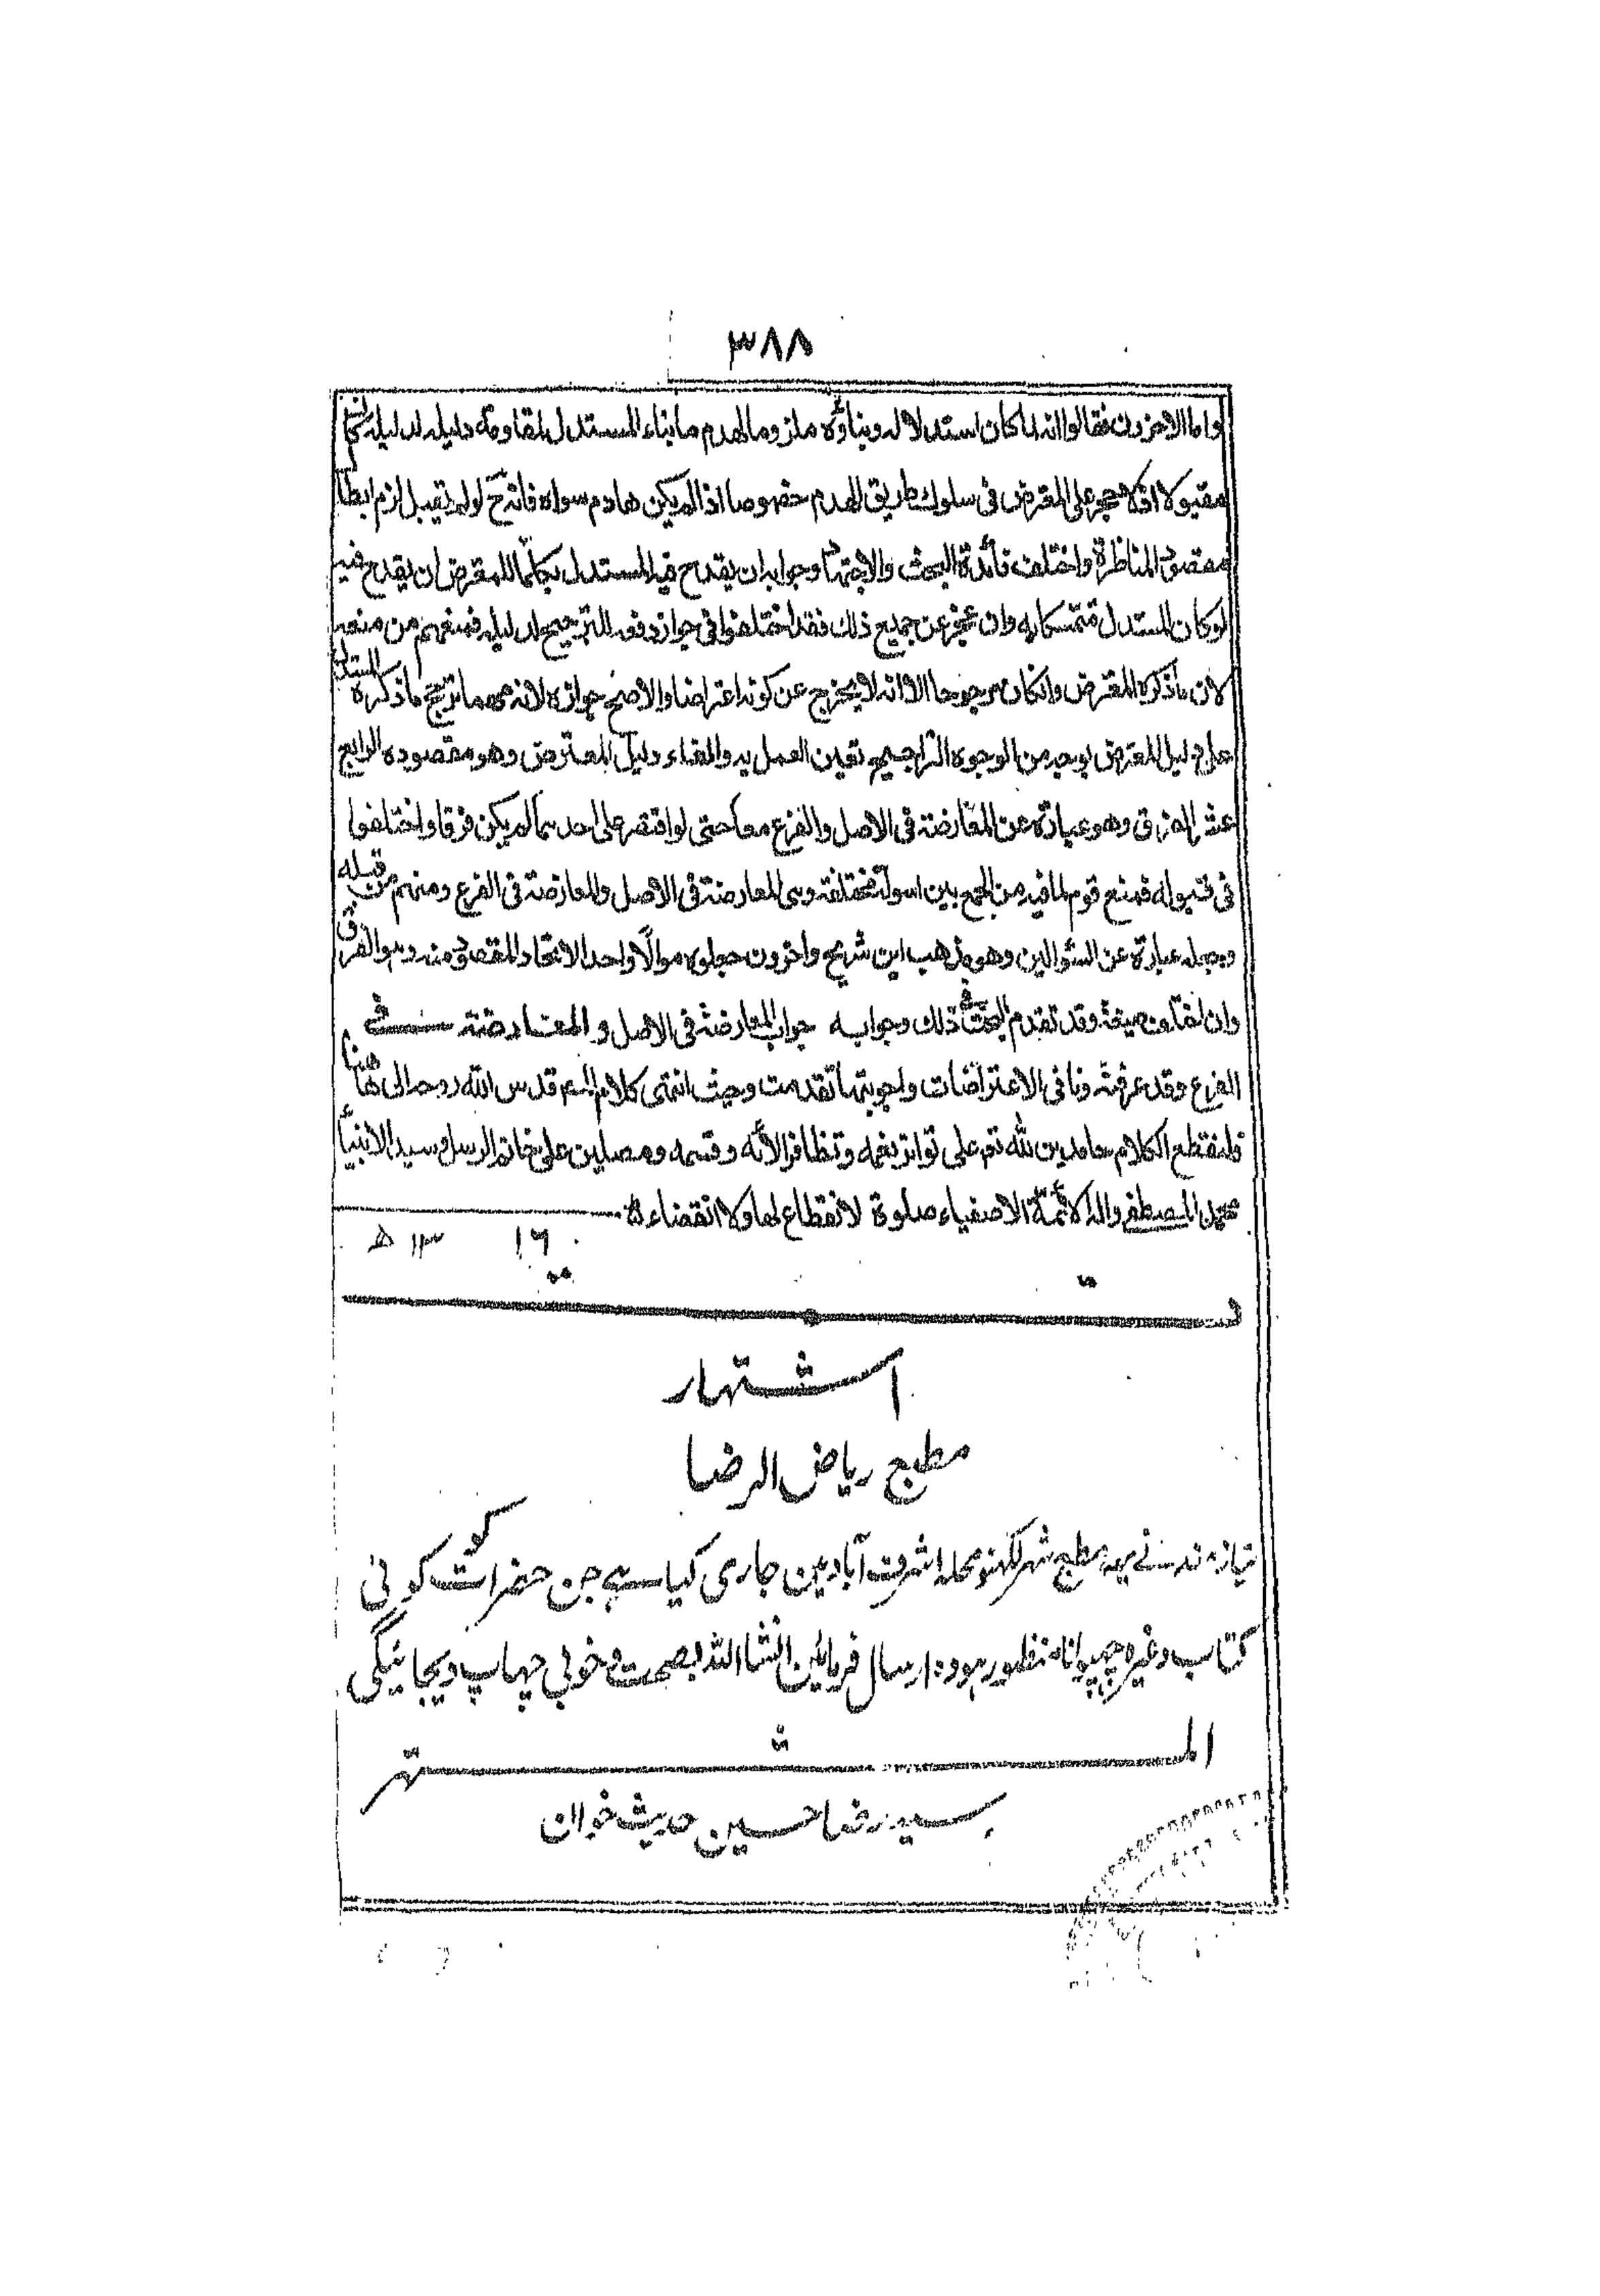 ٣٨٨
واما الاخرون فقالوا انه لما كان استدلاله وبناؤه ملزوما لهدم ما بناه المستدل لمقاومة دليله لدليله كان
مقبولا اذ لا حجر على المعترض فى سلوك طريق الهدم خصوصا اذا لم يكن هادم سواه فانه ح لو لم يقبل لزم ابطال
مقصود المناظرة واختلت فائدة البحث والاجتهاد وجوابه ان يقدح فيه المستدل بكلما للمعترض ان يقدح فيه
لو كان المستدل متمسكا به وان عجز عن جميع ذلك فقد اختلفوا فى جواز دفعه بالترجيح لدليله فمنهم من منعه
لان ما ذكره المعترض وان كان مرجوحا الا انه لا يخرج عن كونه اعتراضا والاصح جوازه لانه مهما ترجح ما ذكره المستدل
على دليل المعترض بوجه من الوجوه الترجيح تعين العمل به والغاء دليل المعترض وهو مقصوده الرابع
عشر الفرق وهو عبارة عن المعارضة فى الاصل والفرع معا حتى لو اقتصر على احدهما لم يكن فرقا واختلفوا
فى قبوله فمنع قوم لما فيه من الجمع بين اسولة مختلفة وهى المعارضة فى الاصل والمعارضة فى الفرع ومنهم من قبله
وجعله عبارة عن السؤالين وهو مذهب ابن شريح واخرون جعلوه سوالا واحدا لاتحاد المقصود منه وهو الفرق
وان اختلف صيغة وقد تقدم البحث فى ذلك وجوابه جواب المعارضة فى الاصل و المعارضة فى
الفرع وقد عرفته وباقى الاعتراضات واجوبتها تقدمت وحيث انتهى كلام المص قدس الله روحه الى هاهنا
فلنقطع الكلام حامدين لله تعم على تواتر نعمه وتظافر الآئه وقسمه ومصلين على خاتم الرسل وسيد الانبياء
محمد المصطفى واله الائمة الاصفياء صلوة لا انقطاع لها ولا انقضاء
١٣ ١٦ ھ
اشتهار
مطبع رياض الرضا
نیازمند نے یہہ مطبع شہر لکہنؤ محلہ اشرف آباد مین جاری کیا ہے جن حضرات کو کوئی
کتاب وغیرہ چہپوانا منظور ہو وہ ارسال فرمائین انشا اللہ بصحت و خوبی چہاپ دیجائیگی
المشتہر
سید رضا حسین حدیث خوان